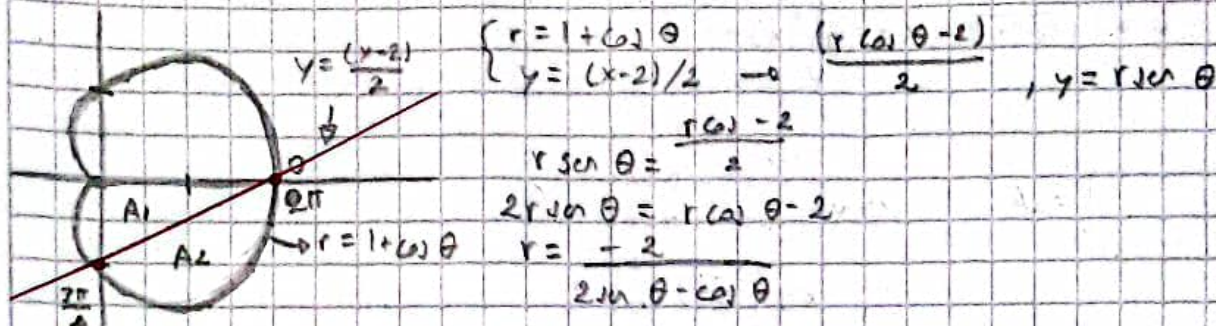 y = (x-2)/2
A1
A2
0
2π
→ r = 1 + cos θ
{ r = 1 + cos θ
{ y = (x-2)/2 → (r cos θ - 2)/2 , y = r sen θ
r sen θ = (r cos - 2)/2
2r sen θ = r cos θ - 2
r = -2/(2 sen θ - cos θ)